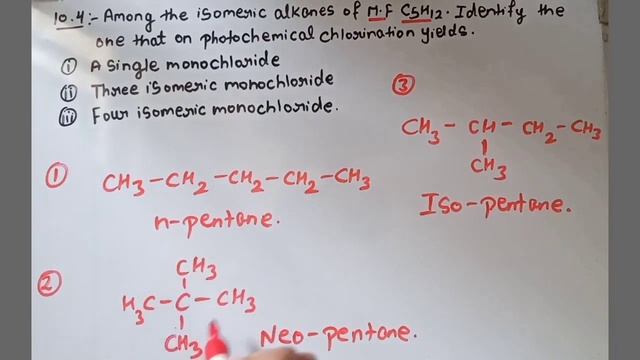 10.4:- Among the isomeric alkanes of M.F C5H12. Identify the
one that on photochemical chlorination yields.
(i) A single monochloride
(ii) Three isomeric monochloride
(iii) Four isomeric monochloride.
① CH3-CH2-CH2-CH2-CH3
n-pentane.
② CH3
H3C-C-CH3
CH3
Neo-pentane.
③
CH3-CH-CH2-CH3
CH3
Iso-pentane.